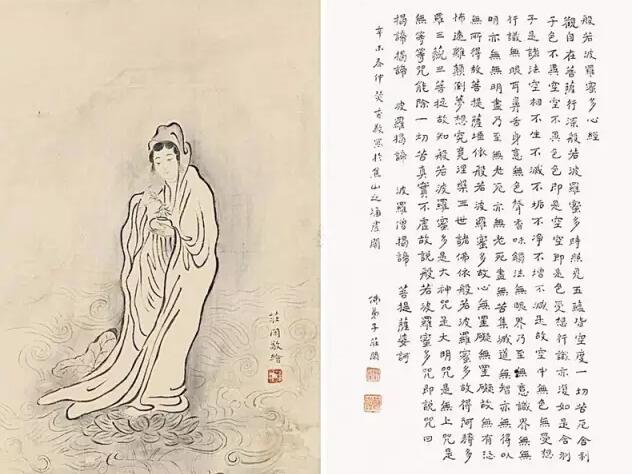 般若波羅蜜多心經
觀自在菩薩行深般若波羅蜜多時照見五蘊皆空度一切苦厄舍利
子色不異空空不異色色即是空空即是色受想行識亦復如是舍利
子是諸法空相不生不滅不垢不淨不增不減是故空中無色無受想
行識無眼耳鼻舌身意無色聲香味觸法無眼界乃至無意識界無無
明亦無無明盡乃至無老死亦無老死盡無苦集滅道無智亦無得以
無所得故菩提薩埵依般若波羅蜜多故心無罣礙無罣礙故無有恐
怖遠離顛倒夢想究竟涅槃三世諸佛依般若波羅蜜多故得阿耨多
羅三藐三菩提故知般若波羅蜜多是大神咒是大明咒是無上咒是
無等等咒能除一切苦真實不虛故說般若波羅蜜多咒即說咒曰
揭諦揭諦 波羅揭諦 波羅僧揭諦 菩提薩婆訶
辛未春仲焚香敬寫於焦山之涵虛閣
佛弟子莊閑
莊閑敬繪